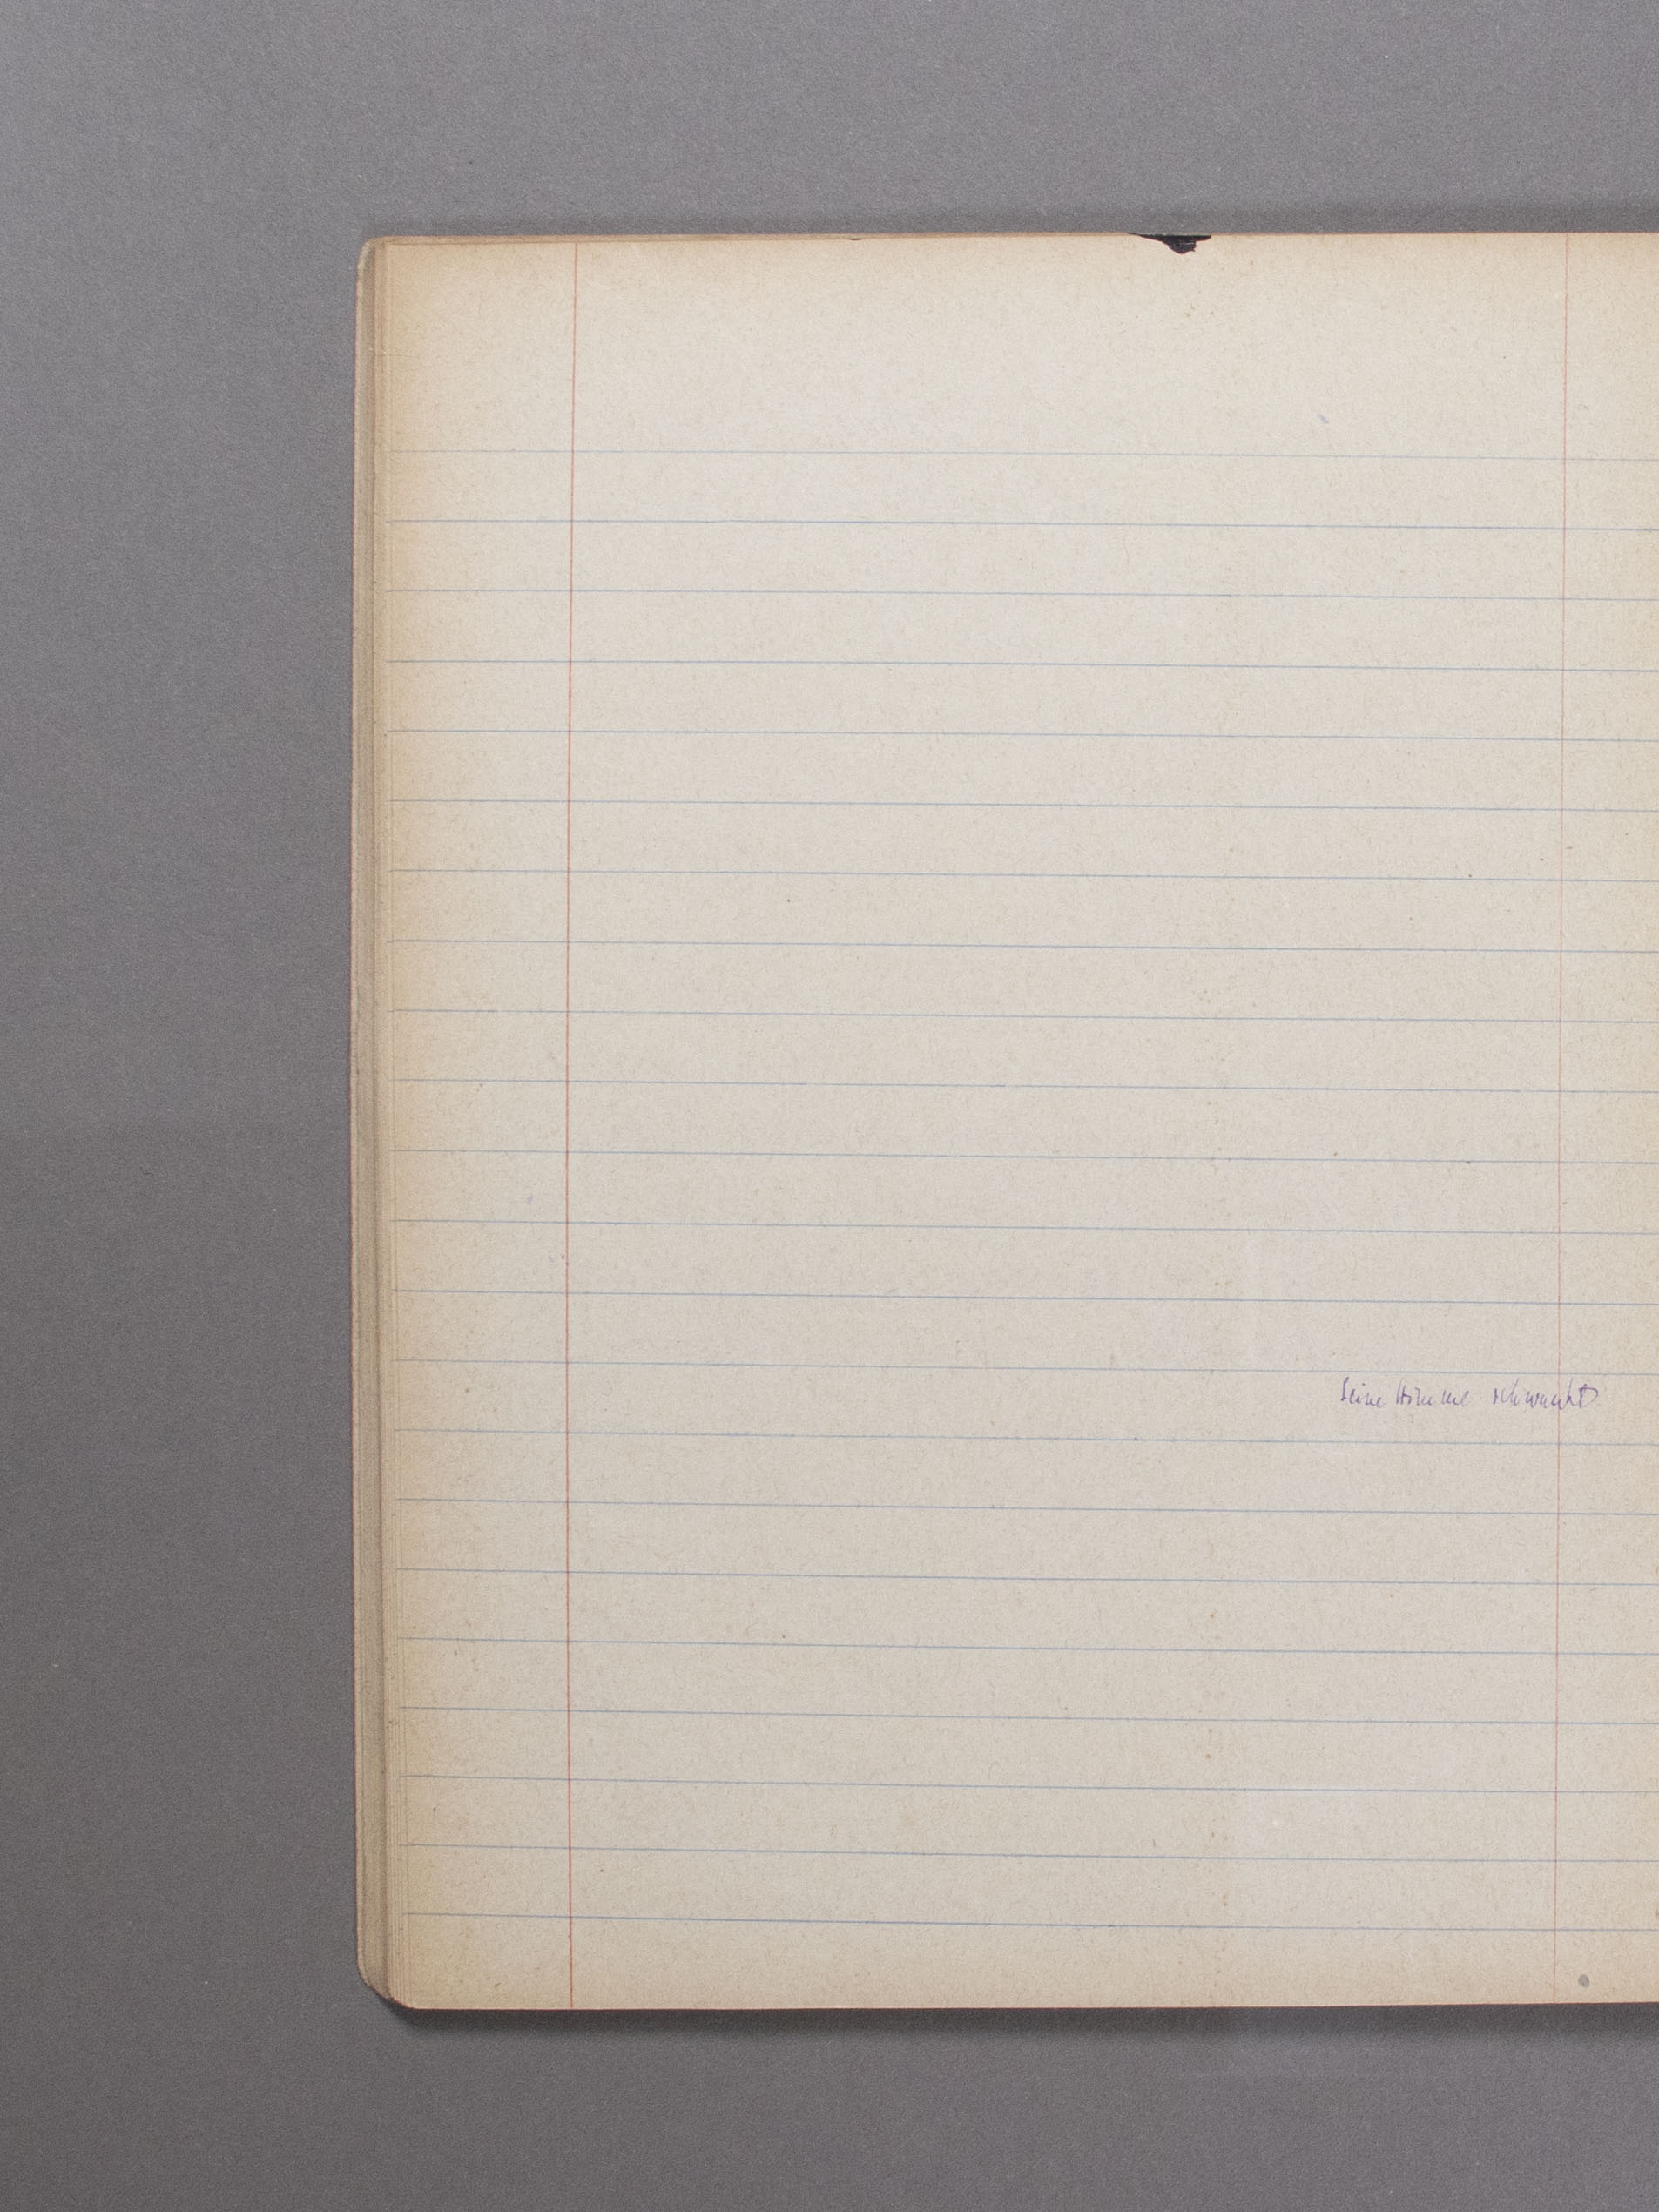 Seine Stimme schwankt